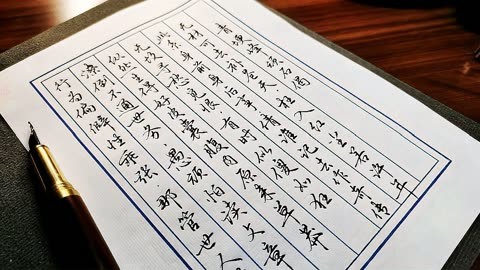 青埂峰顽石偈
无材可去补苍天枉入红尘若许年
此系身前身后事倩谁记去作奇传
无故寻愁觅恨有时似傻如狂
纵然生得好皮囊腹内原来草莽
潦倒不通世务愚顽怕读文章
行为偏僻性乖张那管世人